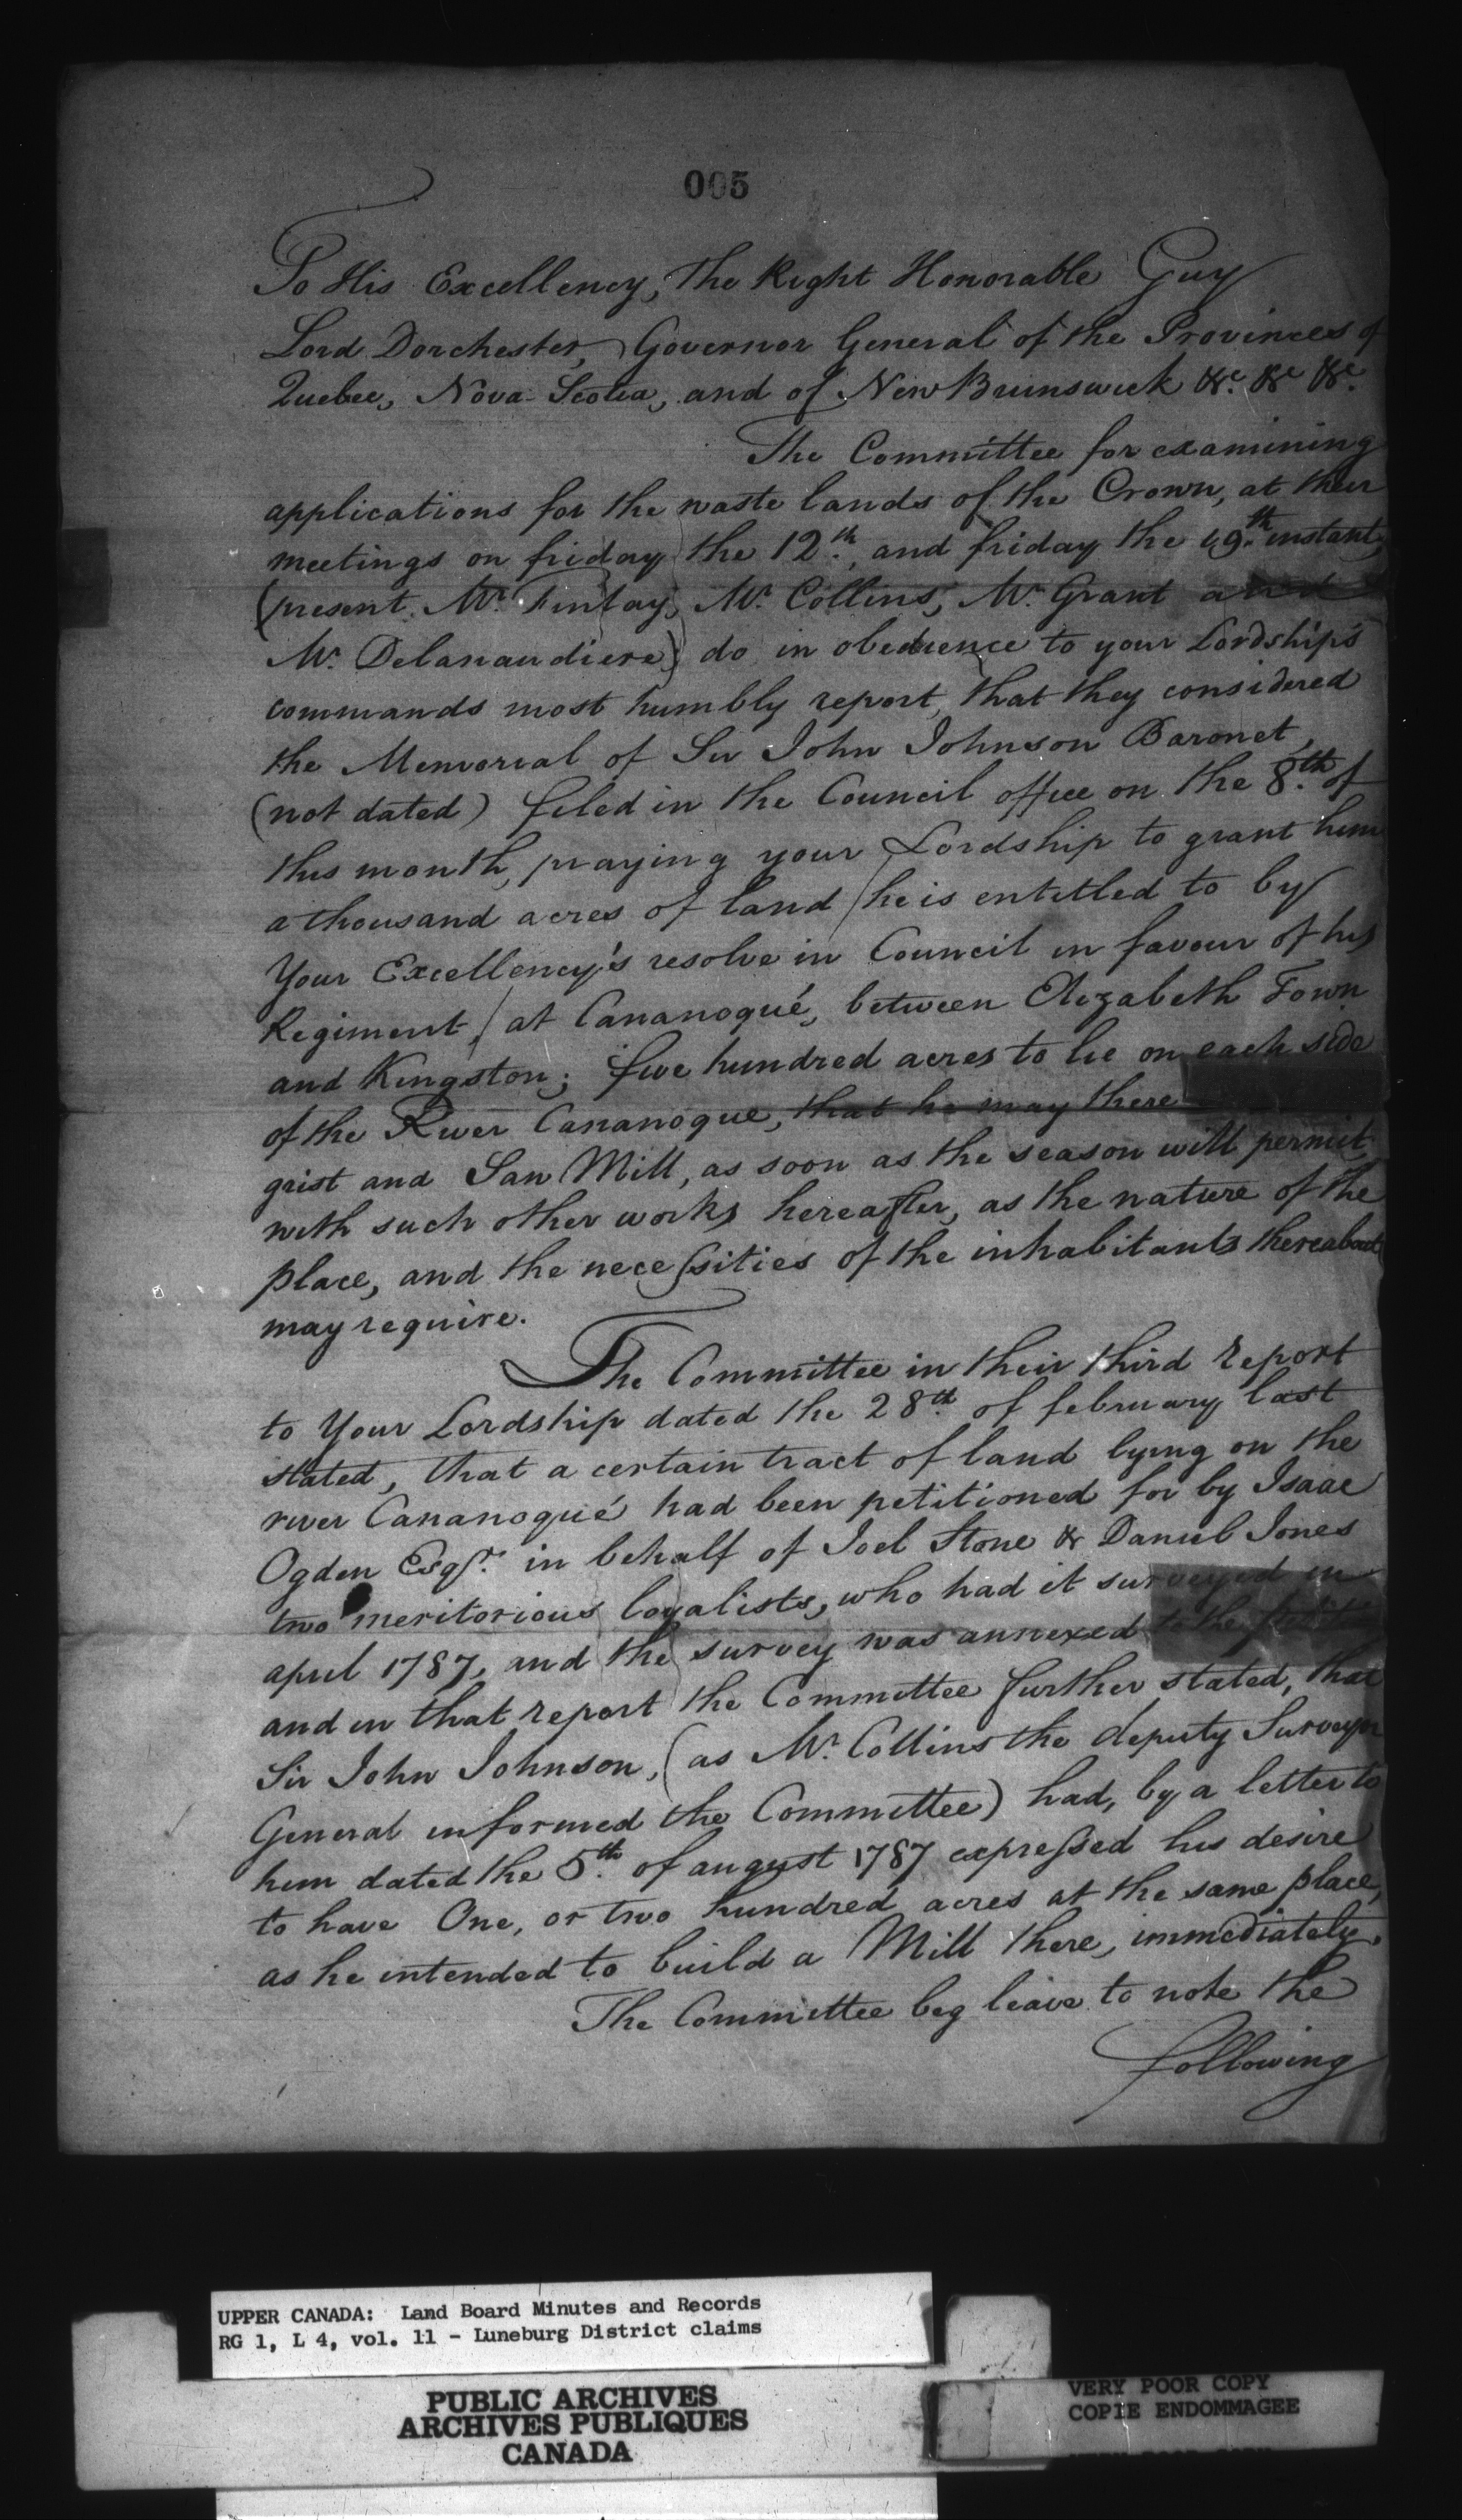 005
To His Excellency, The Right Honorable Guy
Lord Dorchester, Governor General of the Provinces of
Quebec, Nova Scotia, and of New Brunswick &c. &c &c.
The Committee for examining
applications for the waste lands of the Crown, at their
meetings on friday the 12th. and friday the 19th. instant,
(present Mr. Finlay, Mr. Collins, Mr. Grant and
Mr. Delanaudiere) do in obedience to your Lordship's
commands most humbly report, that they considered
the Memorial of Sir John Johnson Baronet,
(not dated) filed in the Council office on the 8th. of
this month, praying your Lordship to grant him
a thousand acres of land /he is entitled to by
Your Excellency's resolve in Council in favour of his
Regiment,/ at Cananoqué, between Elizabeth Town
and Kingston; five hundred acres to lie on each side
of the River Cananoque, that he may there
grist and Saw Mill, as soon as the season will permit,
with such other works hereafter, as the nature of the
place, and the necessities of the inhabitants thereabout
may require.
The Committee in their third report
to Your Lordship dated the 28th. of february last
stated, that a certain tract of land lying on the
river Cananoqué had been petitioned for by Isaac
Ogden Esqr. in behalf of Joel Stone & Daniel Jones
two meritorious loyalists, who had it surveyed in
april 1787, and the survey was annexed to the
and in that report the Committee further stated, that
Sir John Johnson, (as Mr. Collins the deputy Surveyor
General informed the Committee) had, by a letter to
him dated the 5th. of august 1787 expressed his desire
to have One, or two hundred acres at the same place,
as he intended to build a Mill there, immediately.
The Committee beg leave to note the
following
UPPER CANADA: Land Board Minutes and Records
RG 1, L 4, vol. 11 - Luneburg District claims
PUBLIC ARCHIVES
ARCHIVES PUBLIQUES
CANADA
VERY POOR COPY
COPIE ENDOMMAGEE